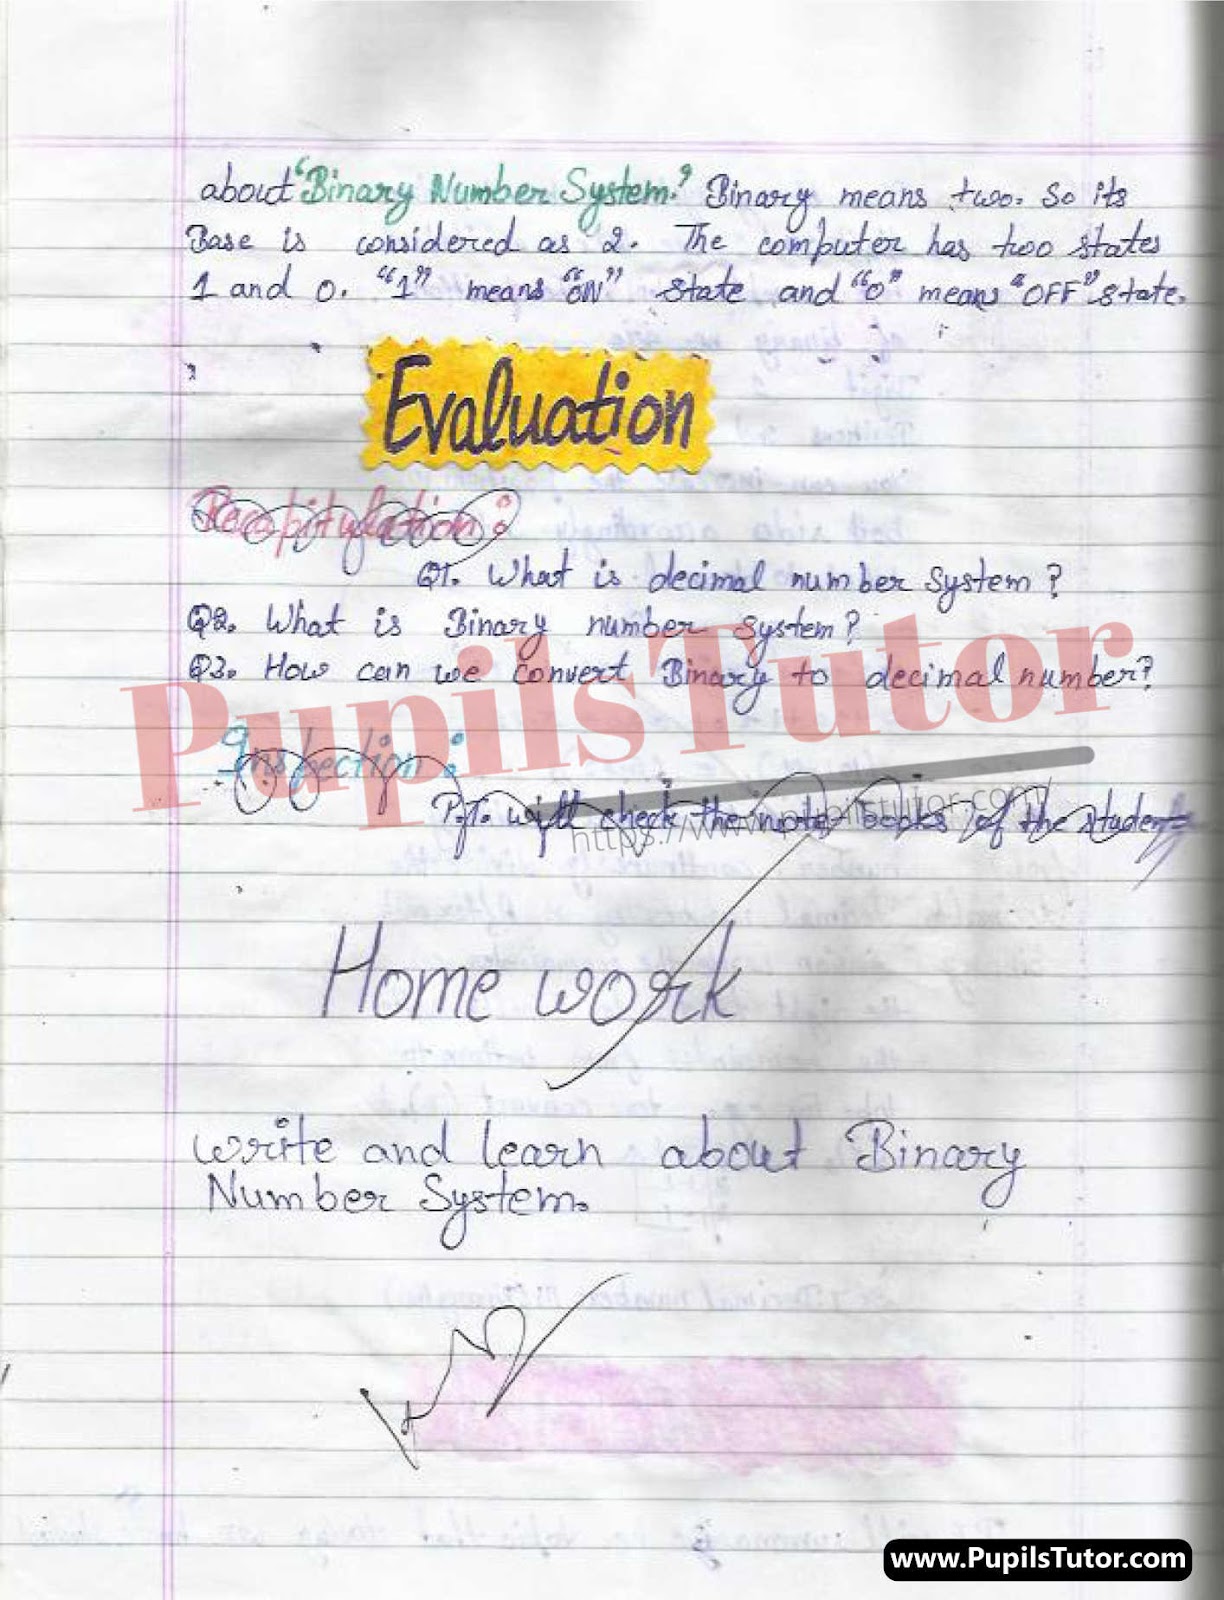 about 'Binary Number System.' Binary means two. So its
Base is considered as 2. The computer has two states
1 and 0. "1" means "ON" state and "0" means "OFF" state.
Evaluation
Recapitulation :
Q1. What is decimal number system ?
Q2. What is Binary number system?
Q3. How can we convert Binary to decimal number?
PupilsTutor
Inspection :
P.T. will check the note books of the students
https://www.pupilstutor.com/
Home work
Write and learn about Binary
Number System.
www.PupilsTutor.com